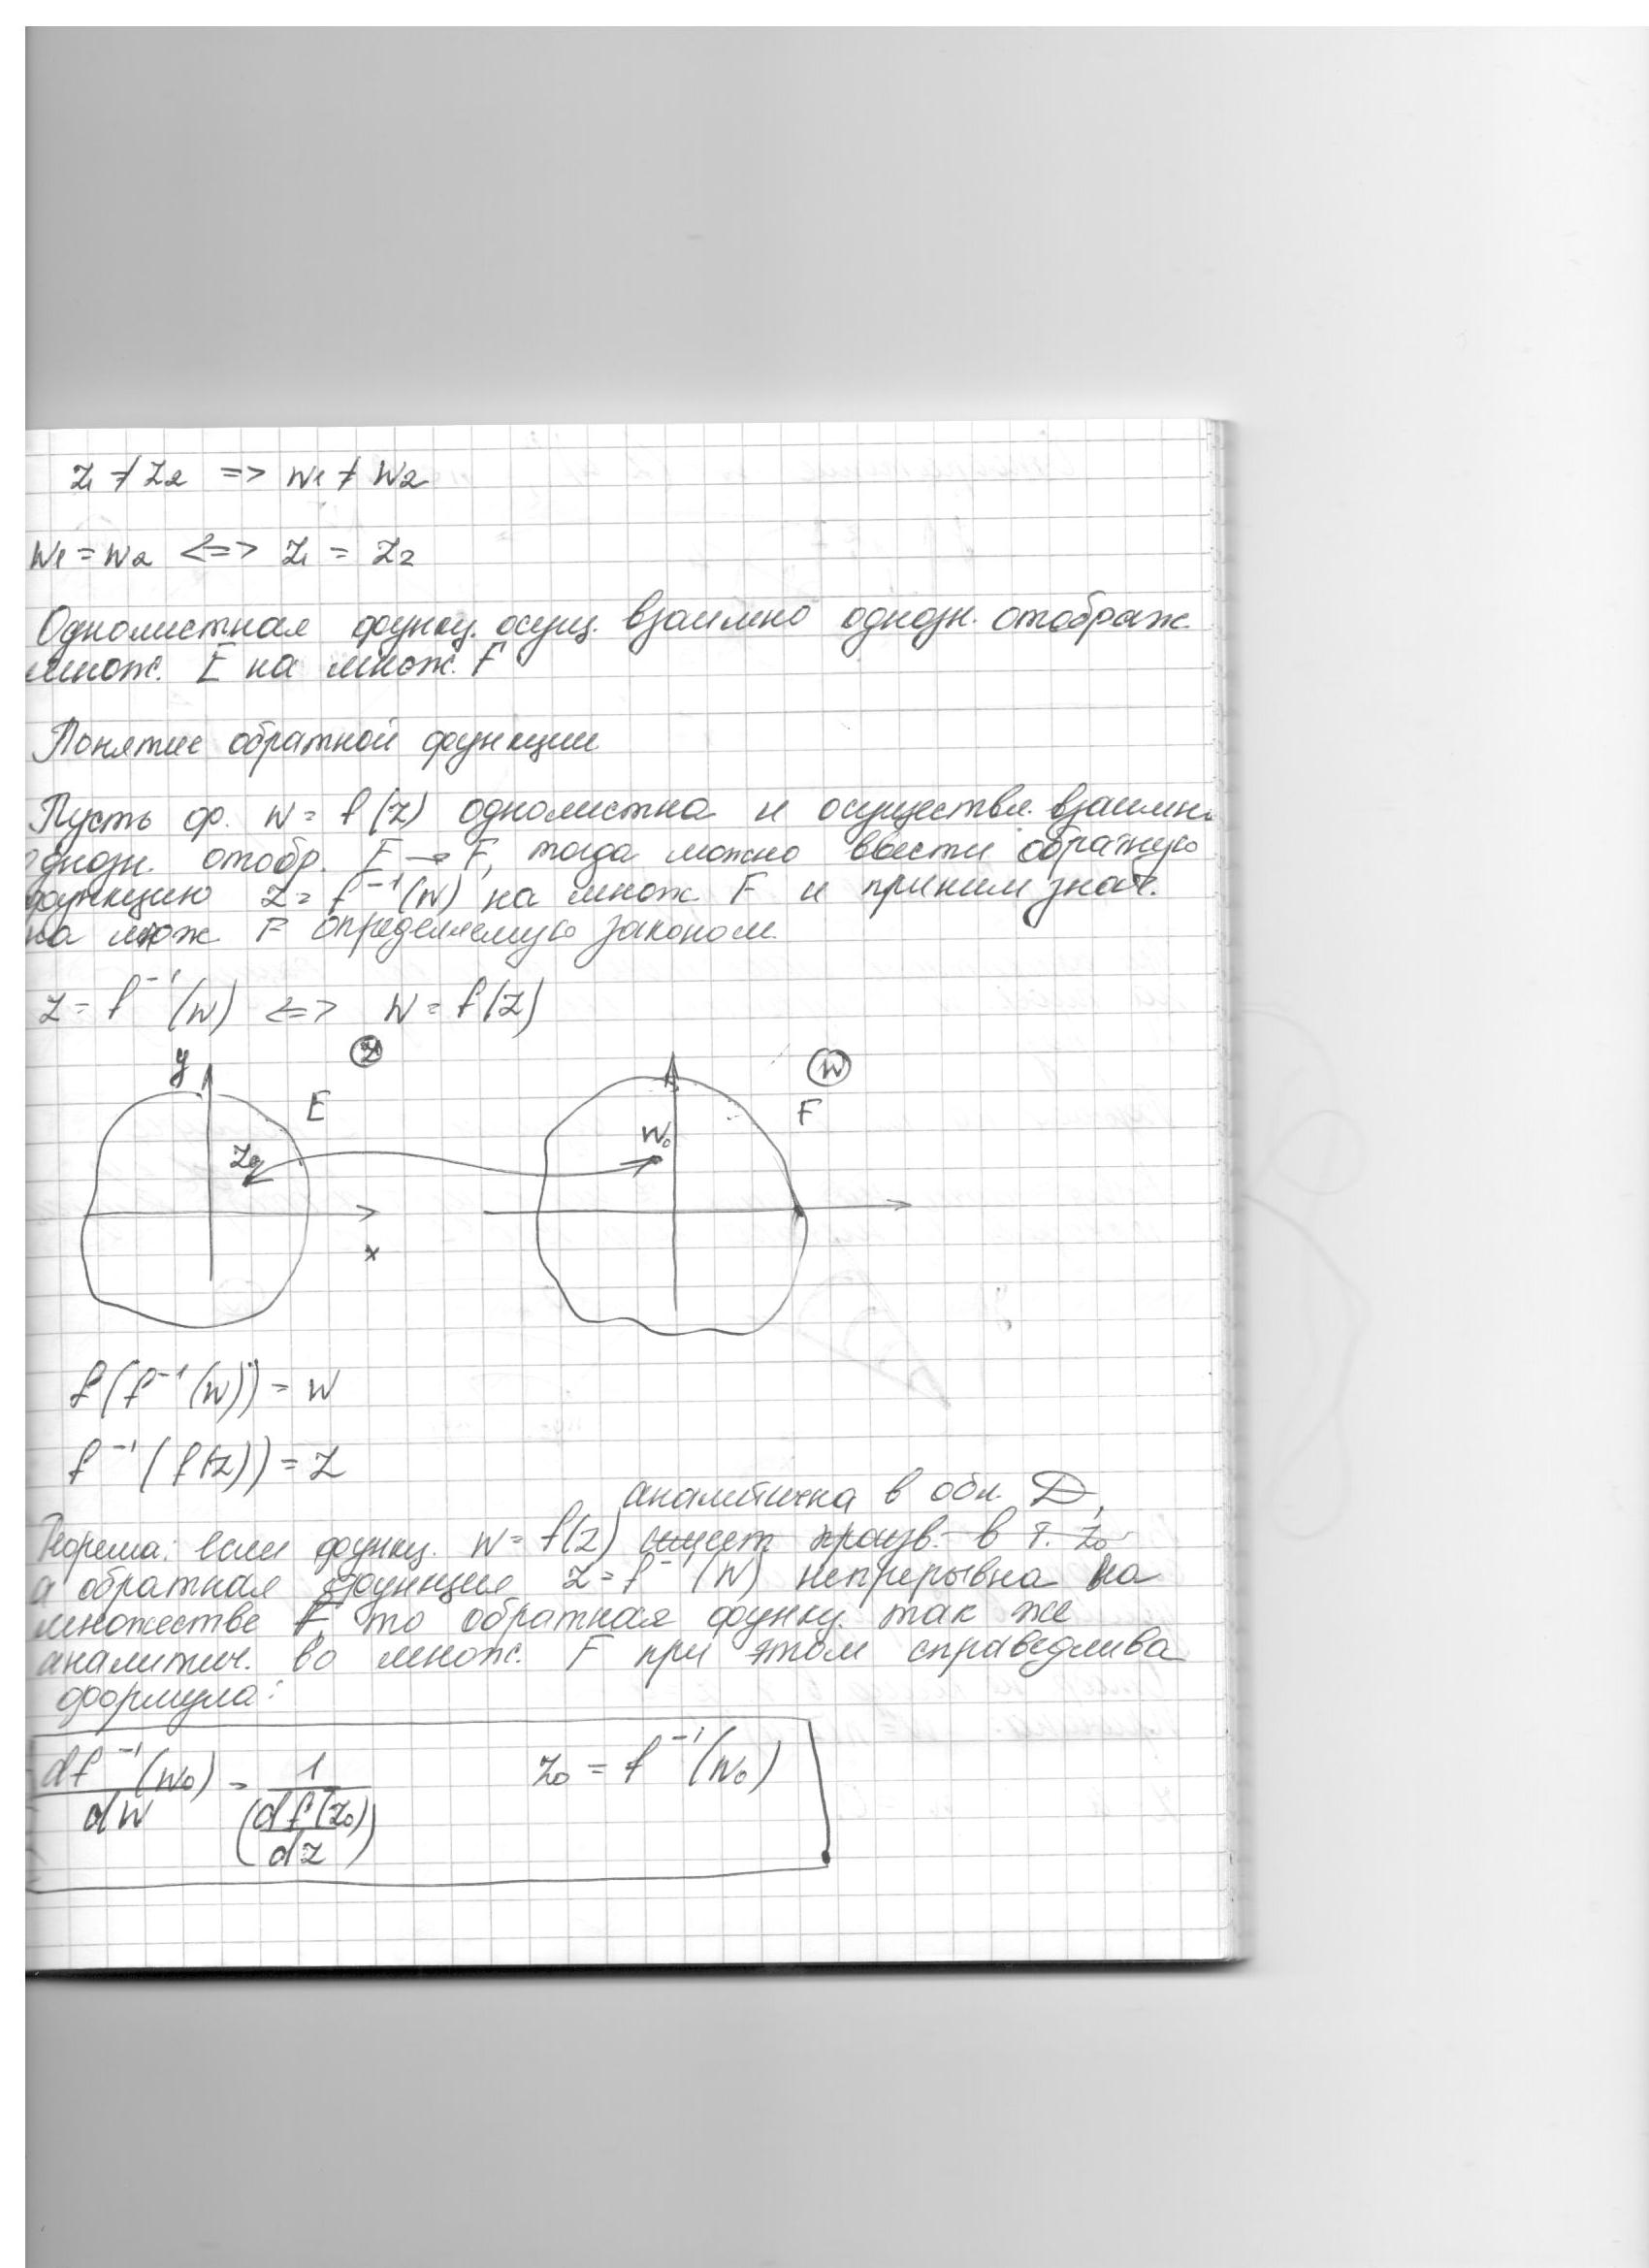 z₁ ≠ z₂ => w₁ ≠ w₂
w₁ = w₂ <=> z₁ = z₂
Однолистная функц. осущ. взаимно однозн. отображ.
множ. E на множ. F
Понятие обратной функции
Пусть ф. w = f(z) однолистна и осуществл. взаимн.
однозн. отобр. E → F, тогда можно ввести обратную
функцию z = f⁻¹(w) на множ. F и приним знач.
на множ F определяемую законом
z = f⁻¹(w) <=> w = f(z)
y z w
E F
z₀ w₀
x
f(f⁻¹(w)) = w
f⁻¹(f(z)) = z
аналитична в обл. D,
Теорема: если функц. w = f(z) имеет произв. в т. z₀
а обратная функция z = f⁻¹(w) непрерывна на
множестве F, то обратная функц. так же
аналитич. во множ. F при этом справедлива
формула:
df⁻¹(w₀)/dw = 1/(df(z₀)/dz) z₀ = f⁻¹(w₀)